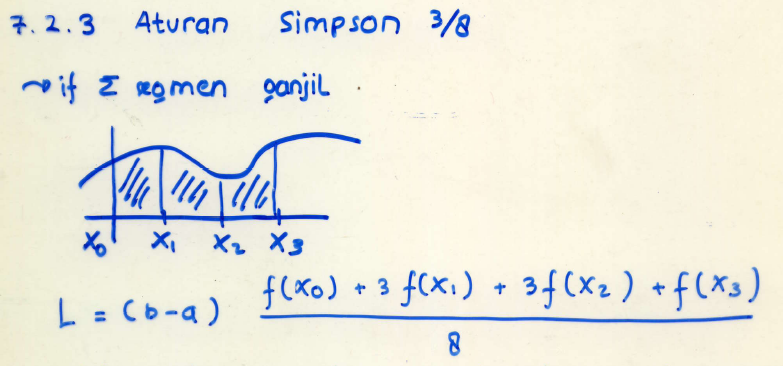 7.2.3 Aturan Simpson 3/8
~> if Σ segmen ganjil.
x₀ x₁ x₂ x₃
L = (b-a) \frac{f(x₀) + 3 f(x₁) + 3 f(x₂) + f(x₃)}{8}